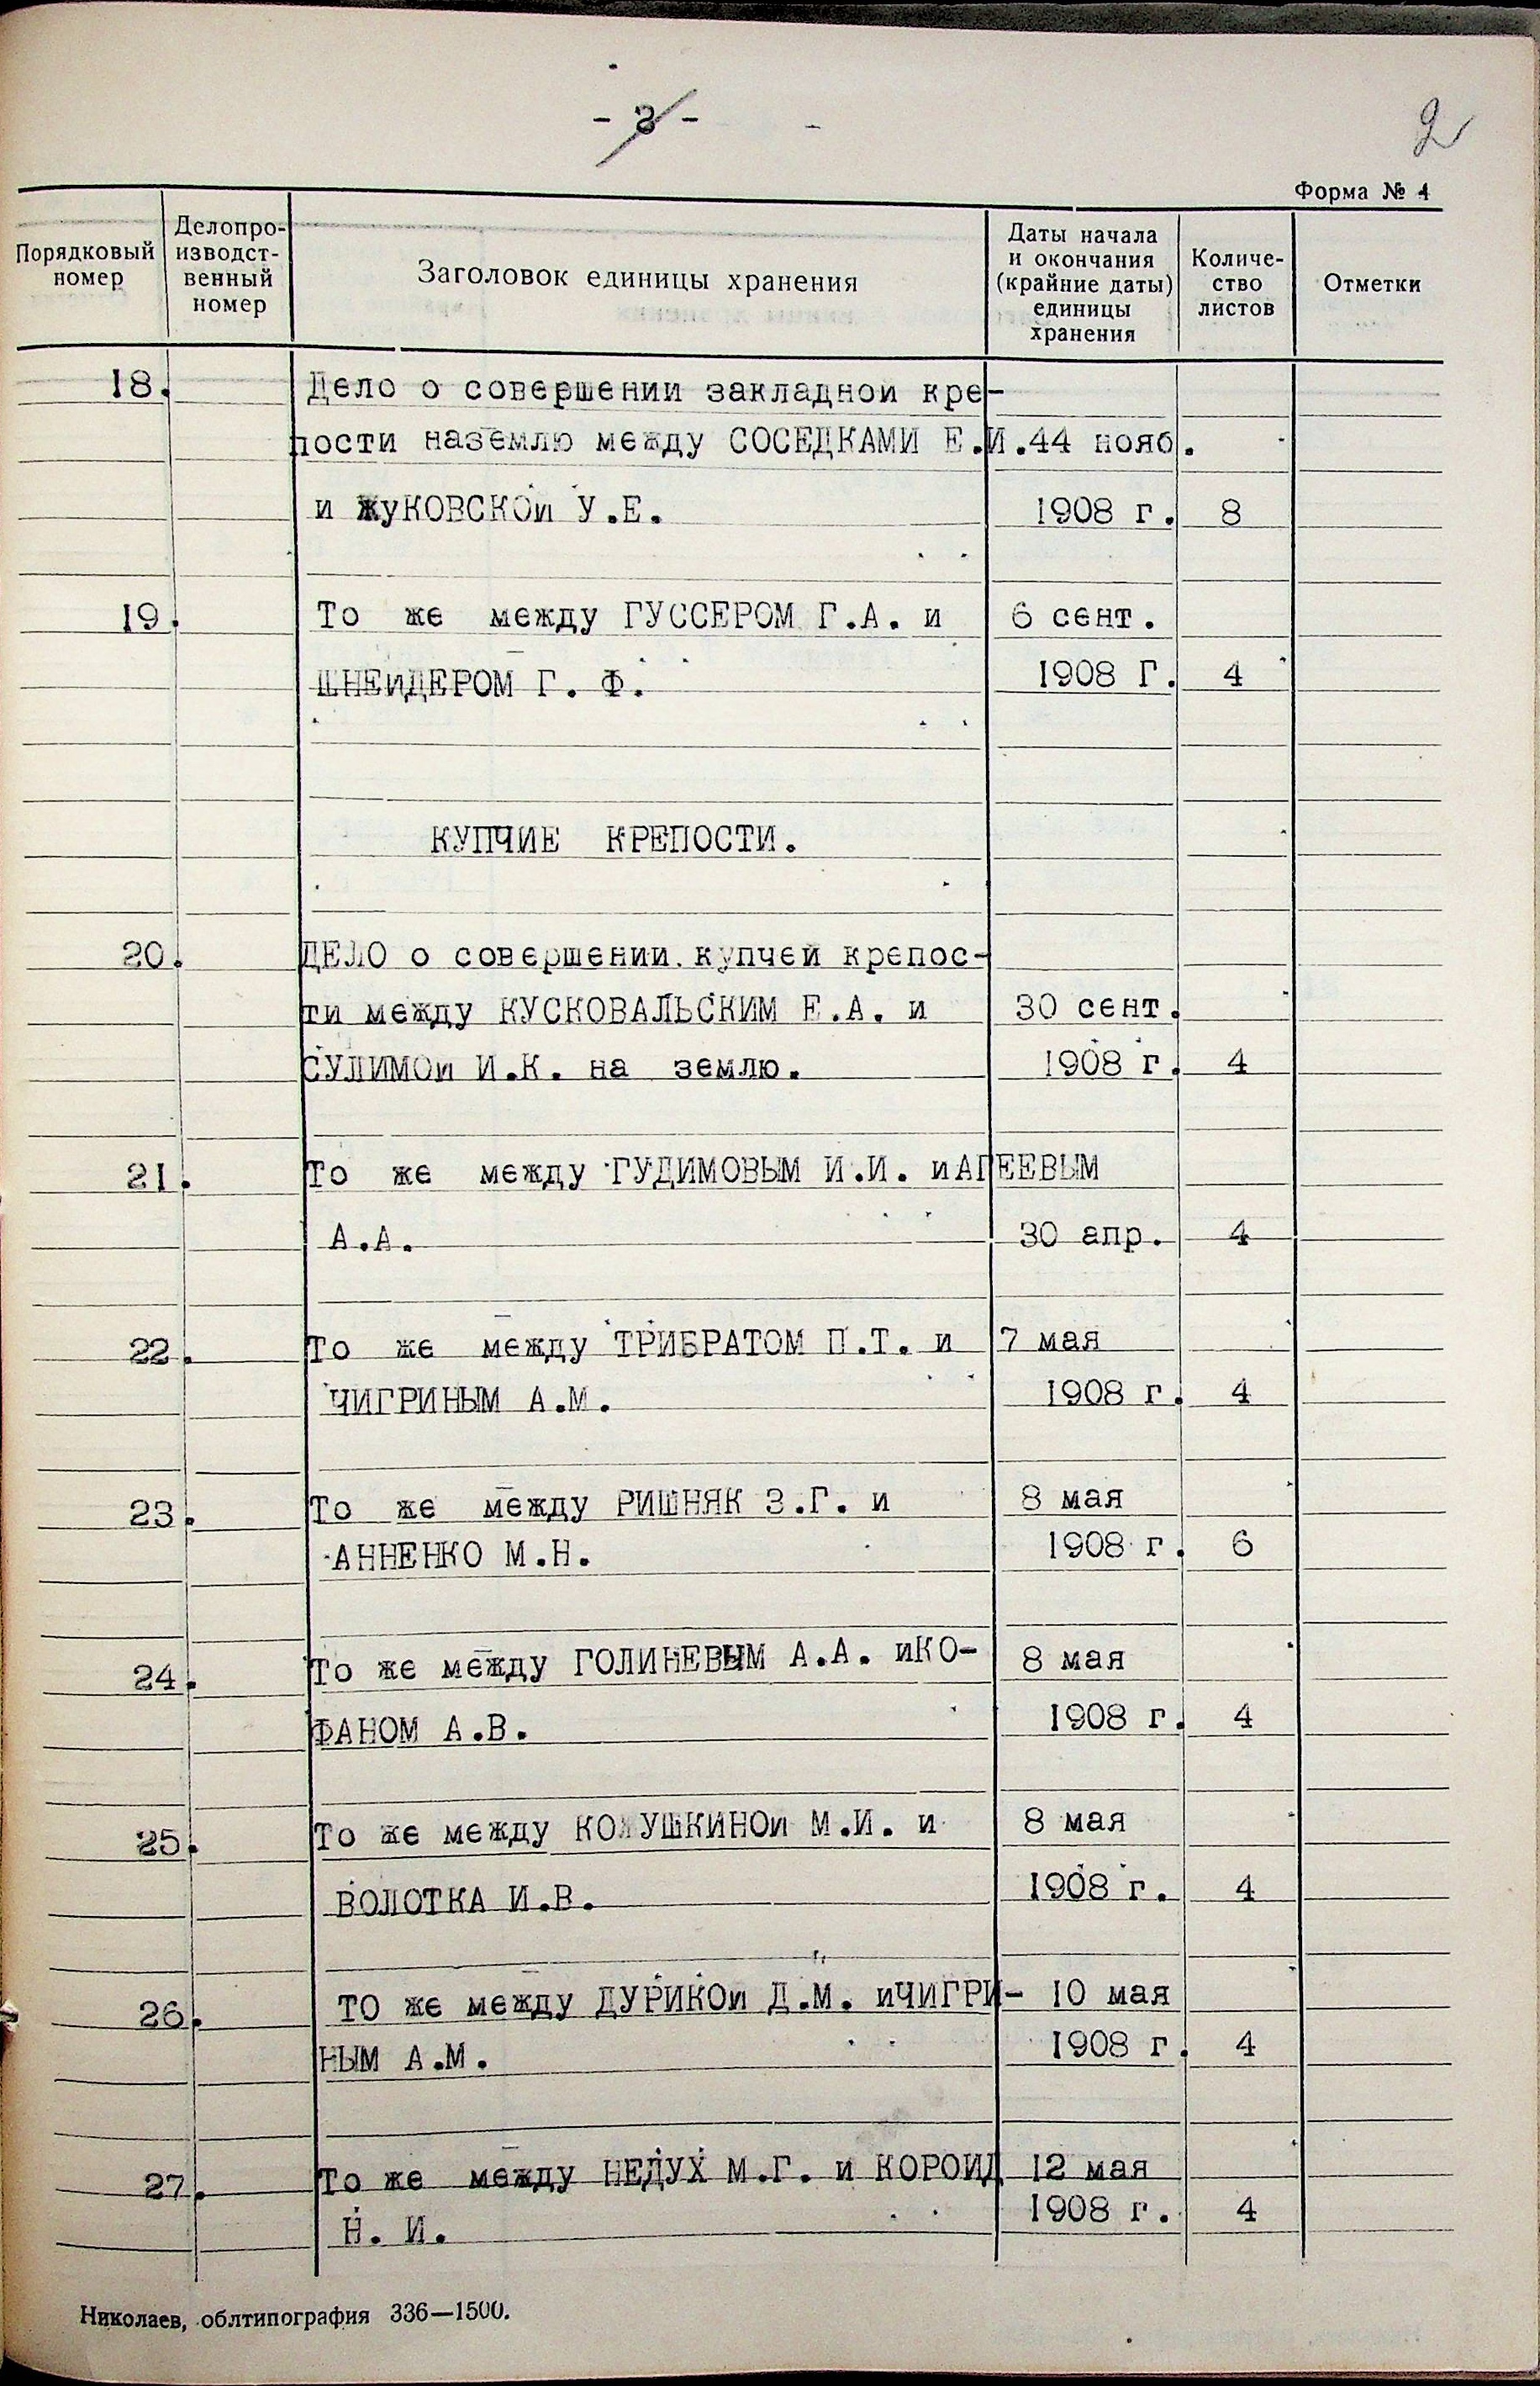 - 3 -
2
Форма № 4
Порядковый номер
Делопро-
изводст-
венный
номер
Заголовок единицы хранения
Даты начала
и окончания
(крайние даты)
единицы
хранения
Количе-
ство
листов
Отметки
18. Дело о совершении закладной кре-
пости наземлю между СОСЕДКАМИ Е.И. 44 нояб.
и жуКОВСКОи У.Е. 1908 г. 8
19. То же между ГУССЕРОМ Г.А. и 6 сент.
ШНЕИДЕРОМ Г. Ф. 1908 Г. 4
КУПЧИЕ КРЕПОСТИ.
20. ДЕЛО о совершении купчей крепос-
ти между КУСКОВАЛЬСКИМ Е.А. и 30 сент.
СУЛИМОи И.К. на землю. 1908 г. 4
21. То же между ГУДИМОВЫМ И.И. иАГЕЕВЫМ
А.А. 30 апр. 4
22. То же между ТРИБРАТОМ П.Т. и 7 мая
ЧИГРИНЫМ А.М. 1908 г. 4
23. То же между РИШНЯК З.Г. и 8 мая
АННЕНКО М.Н. 1908 г. 6
24. То же между ГОЛИНЕВЫМ А.А. иКО- 8 мая
ФАНОМ А.В. 1908 г. 4
25. То же между М.И. и 8 мая
ВОЛОТКА И.В. 1908 г. 4
26. ТО же между ДУРИКОи Д.М. иЧИГРИ- 10 мая
НЫМ А.М. 1908 г. 4
27. То же между НЕДУХ М.Г. и КОРОИД 12 мая
Н. И. 1908 г. 4
Николаев, облтипография 336—1500.